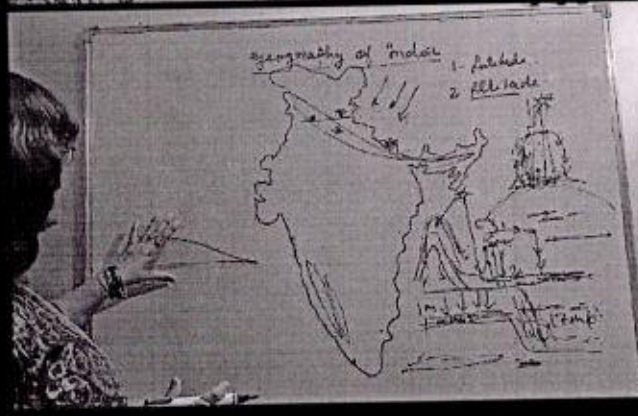 Geography of India
1- Latitude
2 Altitude